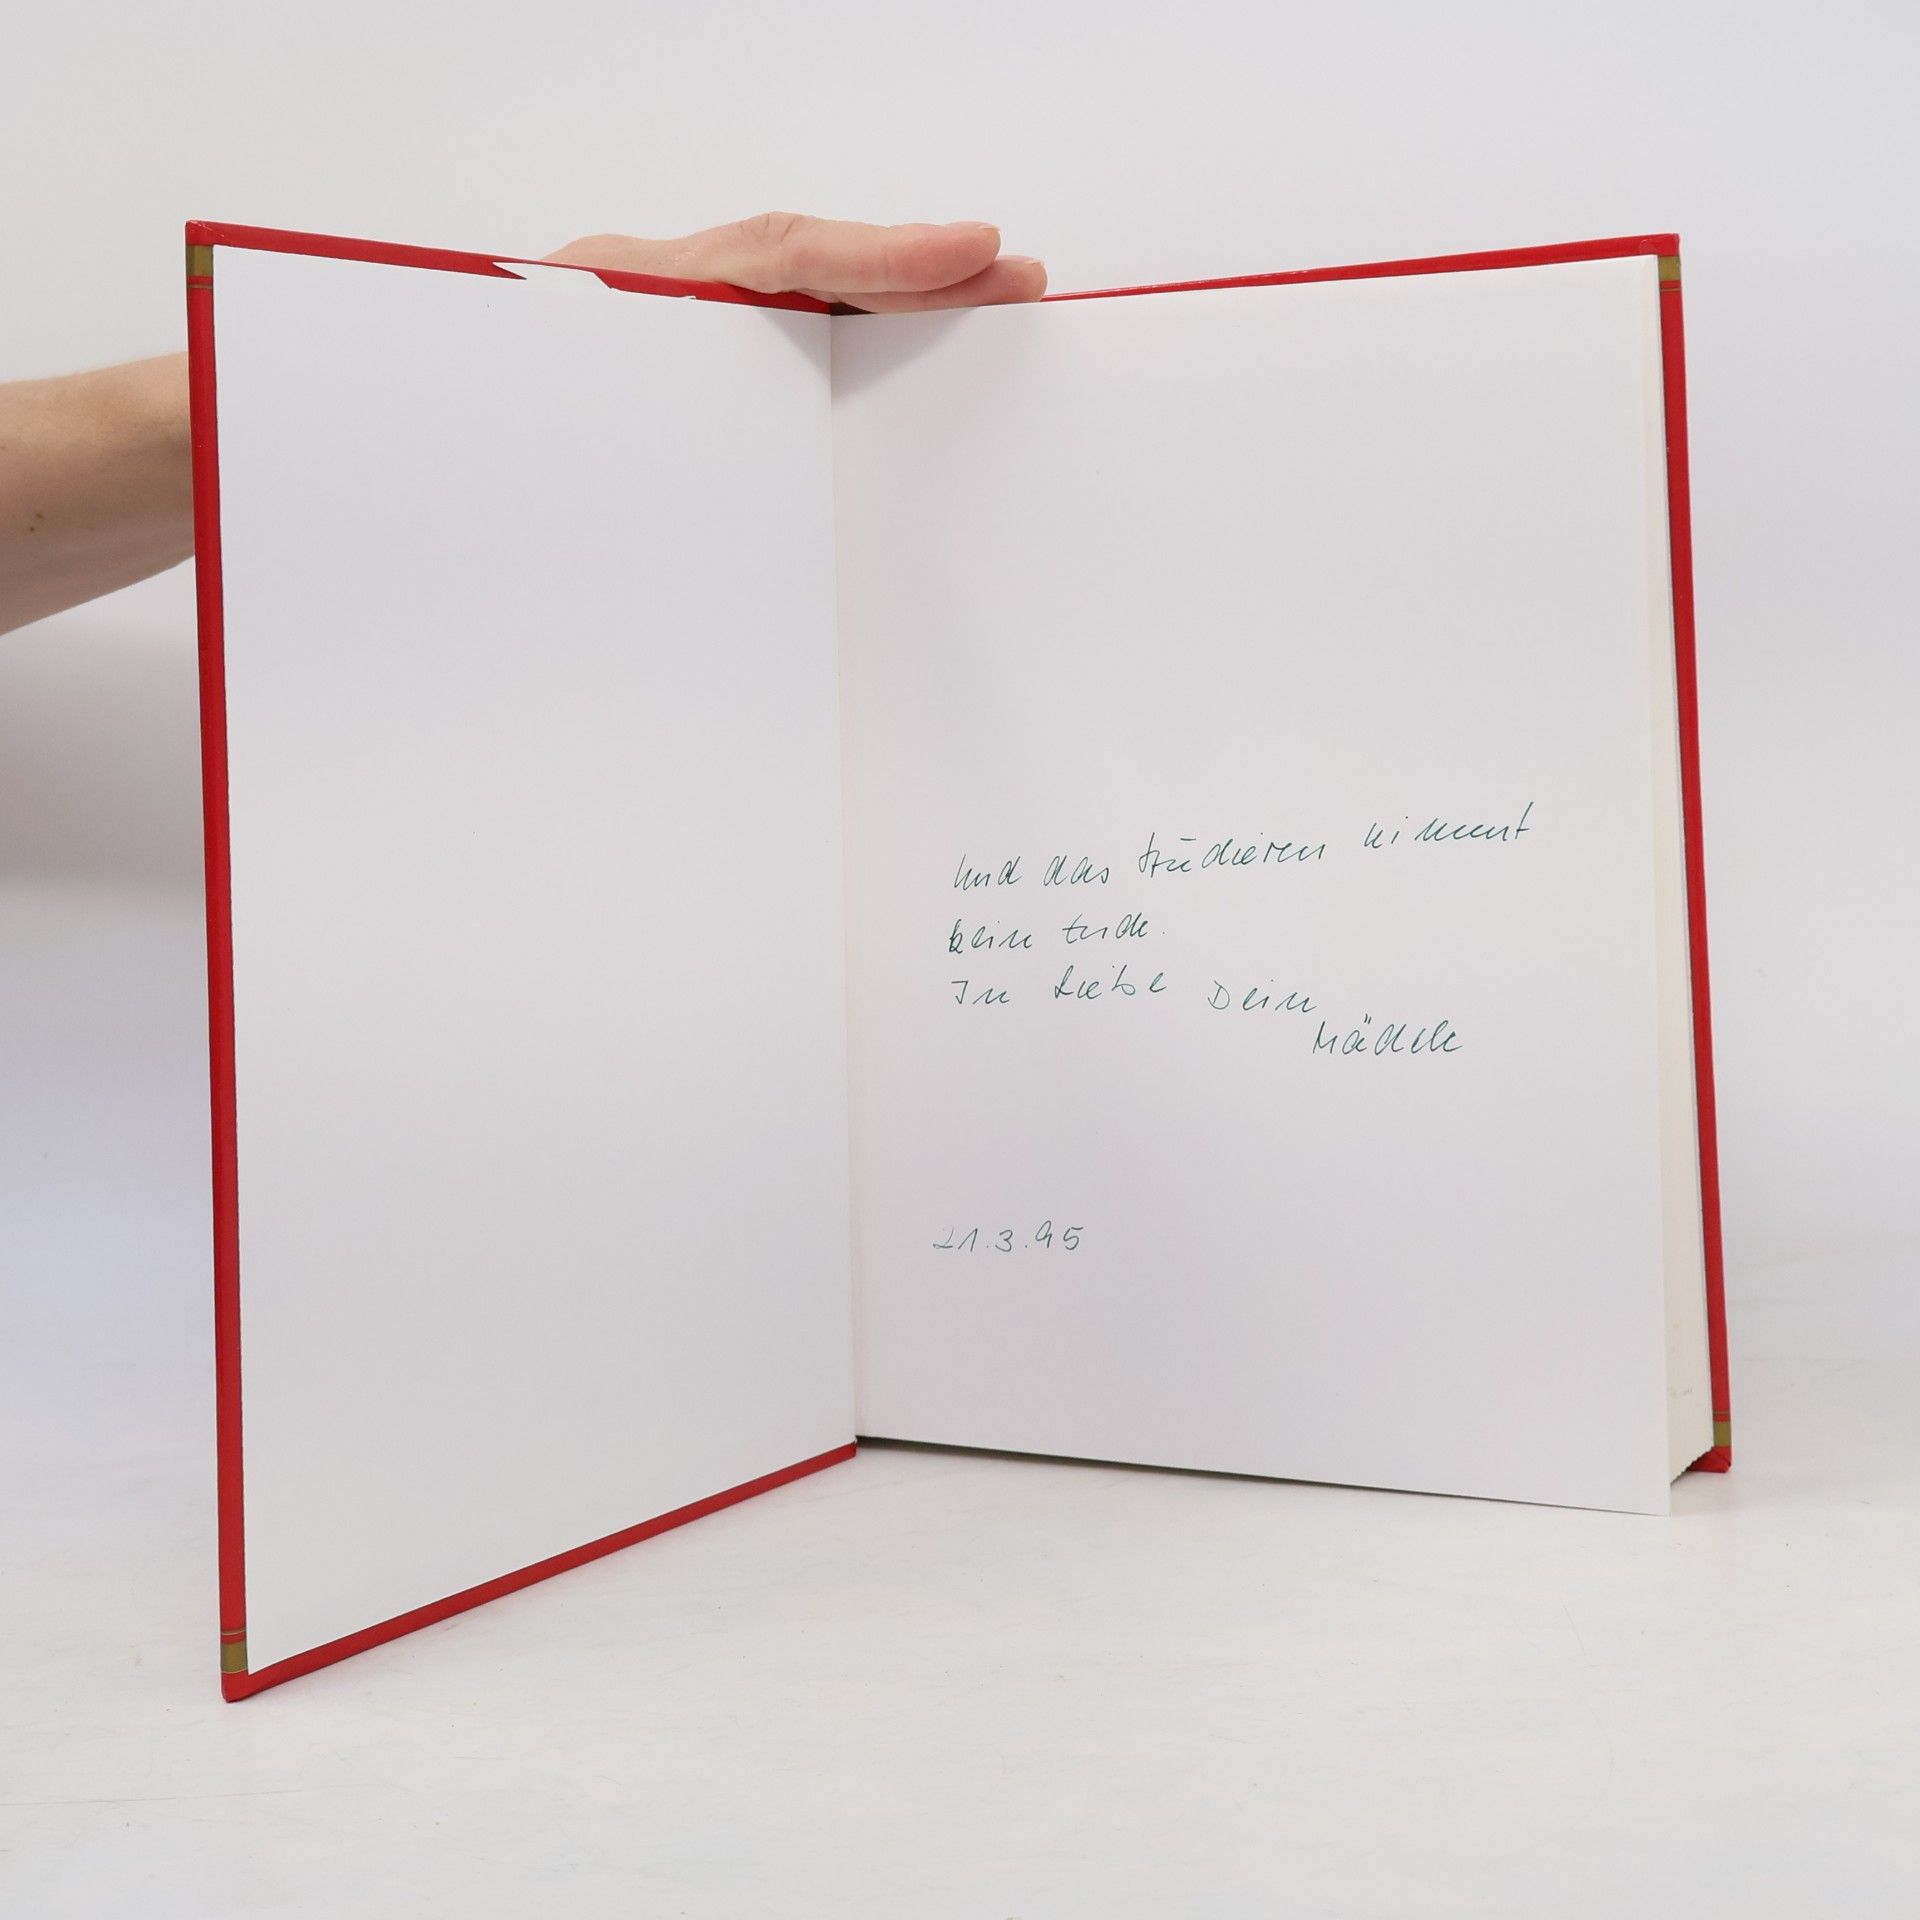 Und das studieren nimmt
kein Ende.
In Liebe Dein
Mädele
21.3.95